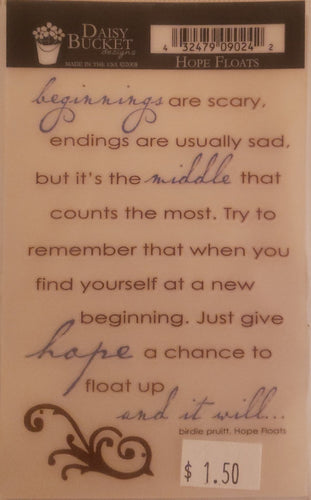 DAISY
BUCKET
designs
MADE IN THE USA ©2008
4 32479 09024 2
HOPE FLOATS
beginnings are scary,
endings are usually sad,
but it's the middle that
counts the most. Try to
remember that when you
find yourself at a new
beginning. Just give
hope a chance to
float up
and it will...
birdie pruitt, Hope Floats
$ 1.50